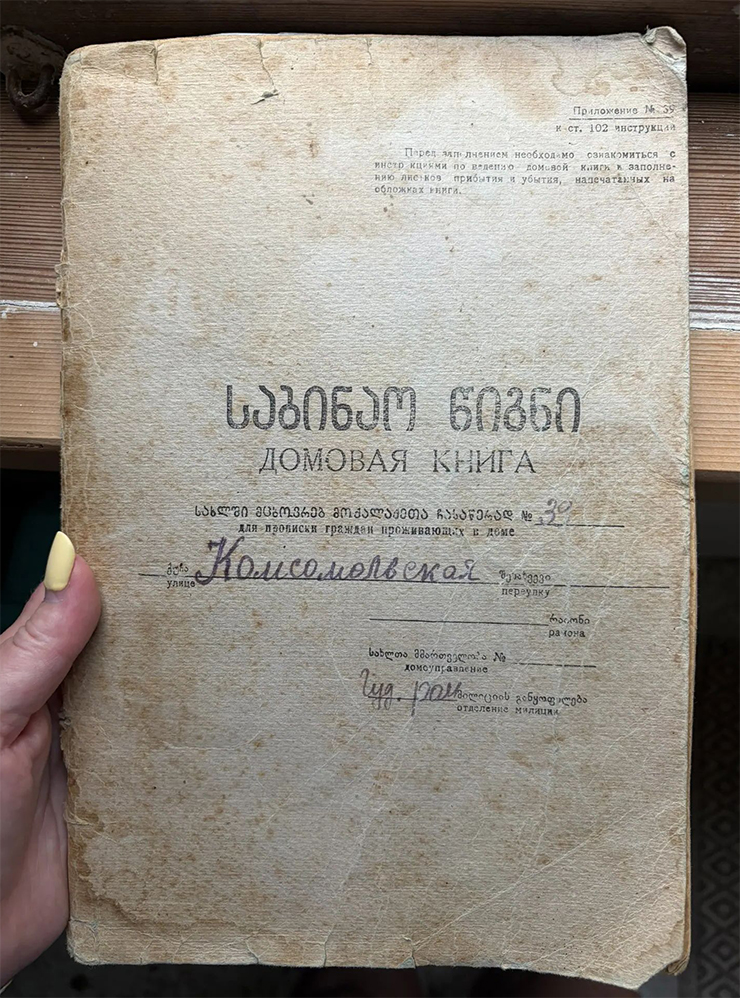 Приложение № 39
к ст. 102 инструкции
Перед заполнением необходимо ознакомиться с
инструкциями по ведению домовой книги и заполне-
нию листков прибытия и убытия, напечатанных на
обложках книги.
ᲡᲐᲑᲘᲜᲐᲝ ᲬᲘᲒᲜᲘ
ДОМОВАЯ КНИГА
სახლში მცხოვრებ მოქალაქეთა ჩასაწერად № 39
для прописки граждан проживающих в доме
ქუჩა Комсомольская შესახვევი
улице переулку
რაიონი
района
სახლთა მმართველობა №
домоуправление
Гуд. рай მილიციის განყოფილება
отделение милиции